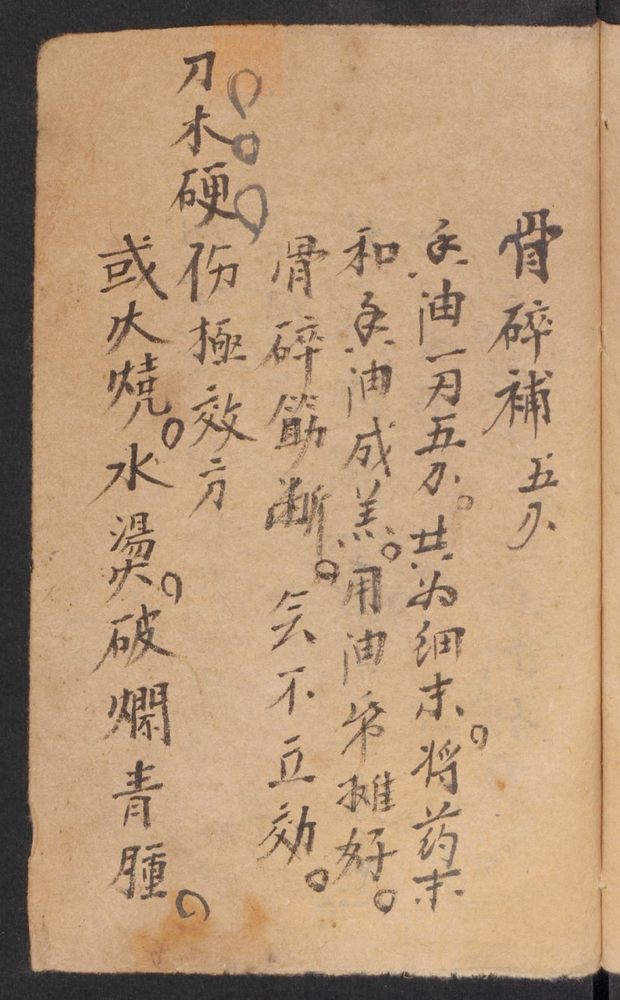 骨碎補五分
香油一刃五分。共為细末。将药末
和香油成羔。用油布摊好。
骨碎筋断。無不立効。
刀。木。硬。伤極效方
或火燒。水燙。破爛青腫。